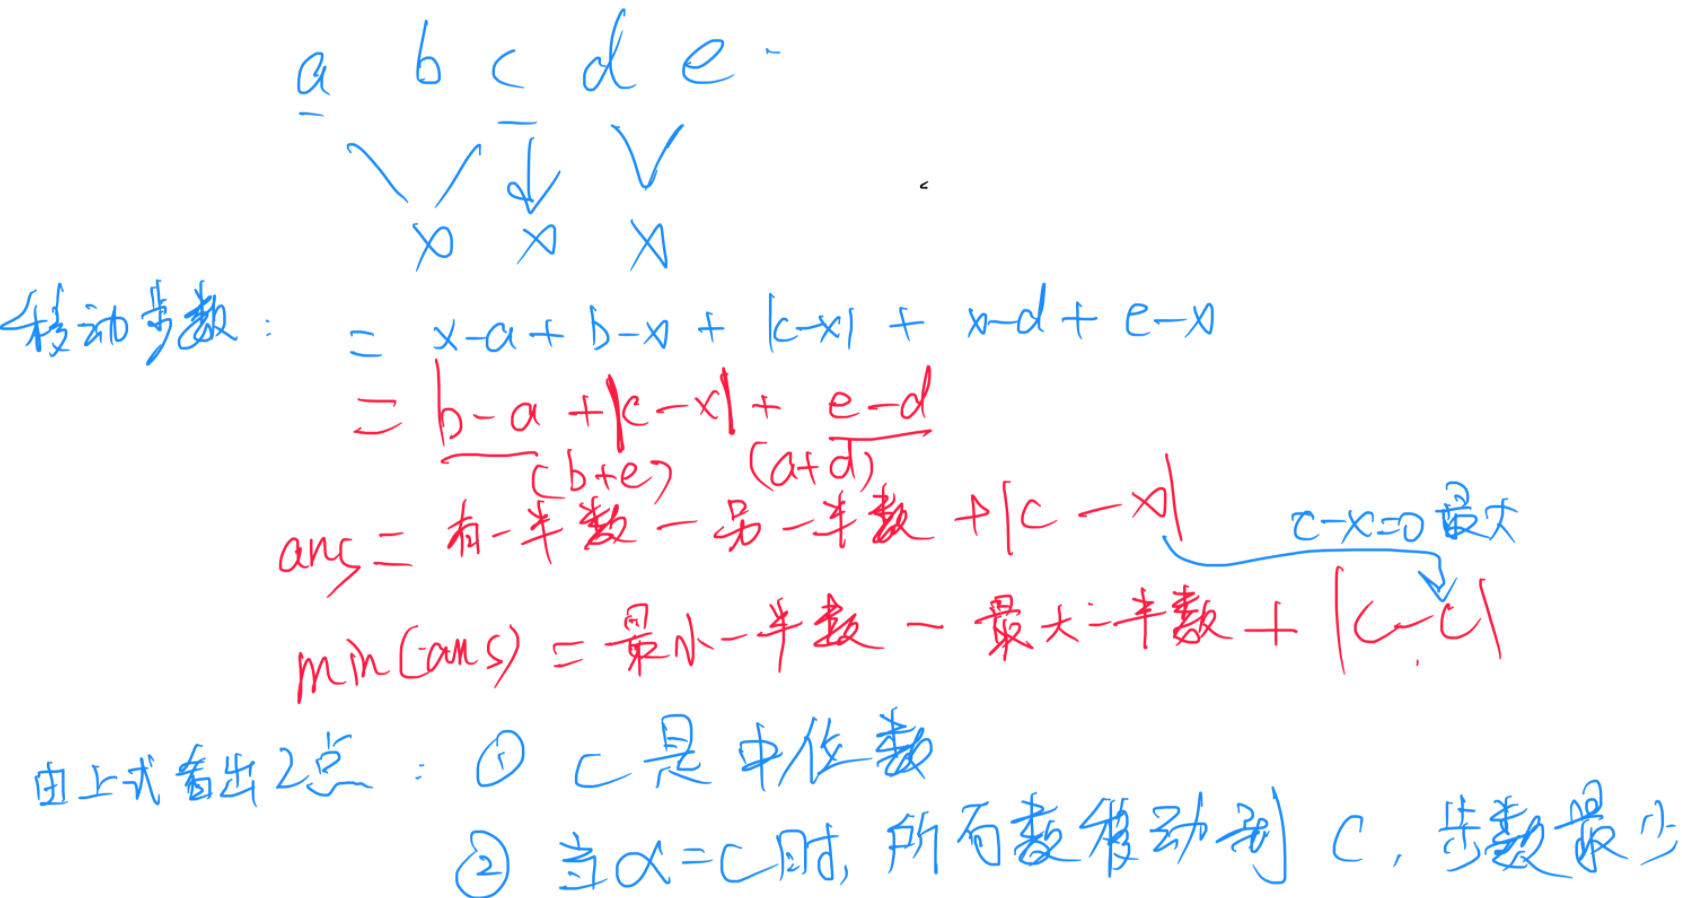 a b c d e
x x x
移动步数: = x-a+b-x+|c-x|+x-d+e-x
= b-a+|c-x|+e-d
(b+e) (a+d)
ans= 有一半数-另一半数+|c-x|
c-x=0最大
min(ans)=最小一半数-最大一半数+|c-c|
由上式看出2点: ① c是中位数
② 当x=c时,所有数移动到c,步数最少